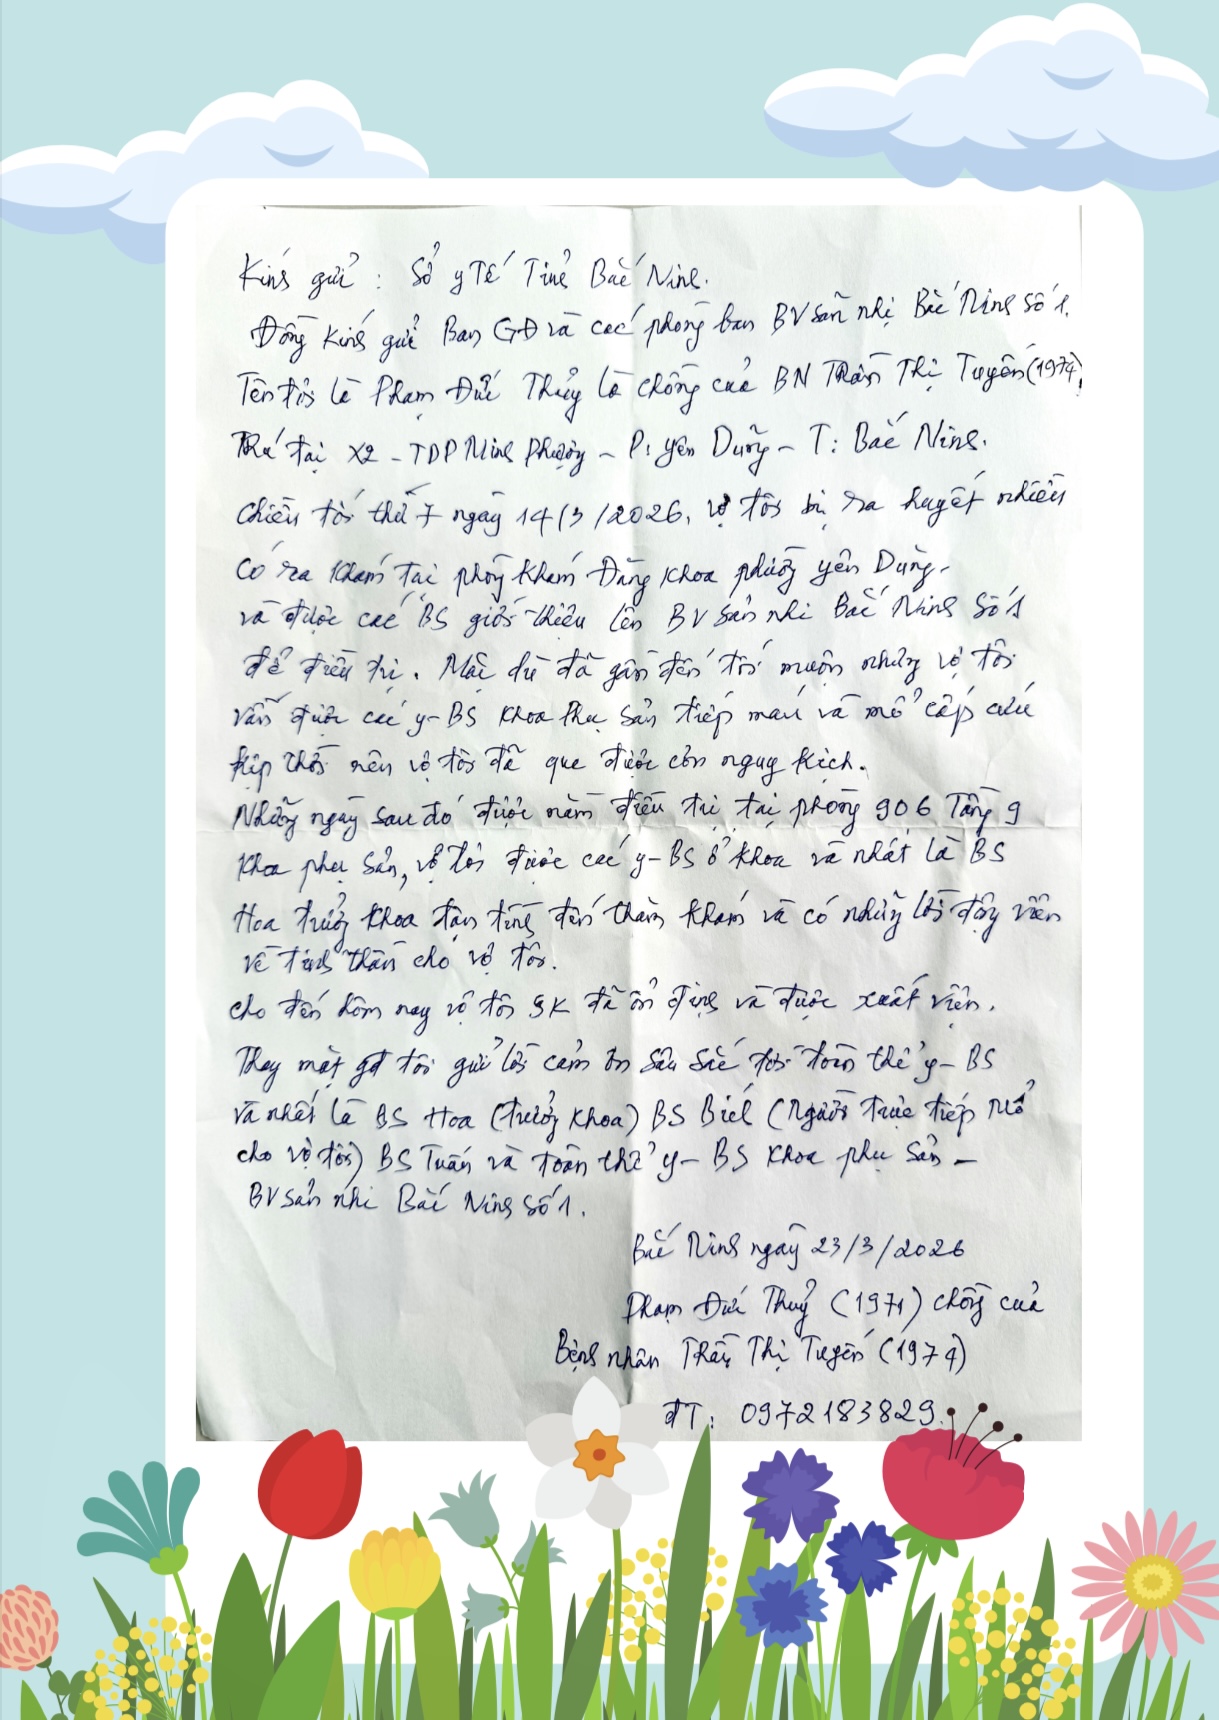 Kính gửi : Sở y Tế Tỉnh Bắc Ninh.
Đồng Kính gửi Ban GĐ và các phòng ban BV sản nhi Bắc Ninh số 1.
Tên tôi là Phạm Đức Thủy là chồng của BN Thân Thị Tuyến (1974)
Trú tại X2 - TDP Ninh Phượng - P: yên Dũng - T: Bắc Ninh.
Chiều tối thứ 7 ngày 14/3/2026, vợ tôi bị ra huyết nhiều
Có ra khám tại phòng khám Đa khoa phường yên Dũng.
và được các BS giới thiệu lên BV sản nhi Bắc Ninh Số 1
để điều trị. Mặc dù đã gần đến tối muộn nhưng vợ tôi
vẫn được các y-BS khoa Phụ Sản tiếp máu và mổ cấp cứu
kịp thời nên vợ tôi đã qua được cơn nguy kịch.
Những ngày sau đó được nằm điều trị tại phòng 906 Tầng 9
Khoa phụ Sản, vợ tôi được các y-BS ở khoa và nhất là BS
Hoa trưởng khoa tận tình đến thăm khám và có những lời động viên
về tinh thần cho vợ tôi.
cho đến hôm nay vợ tôi SK đã ổn định và được xuất viện.
Thay mặt gđ tôi gửi lời cảm ơn sâu sắc tới toàn thể y-BS
và nhất là BS Hoa (trưởng khoa) BS (Người trực tiếp mổ
cho vợ tôi) BS Tuấn và toàn thể y-BS khoa phụ Sản -
BV sản nhi Bắc Ninh Số 1.
Bắc Ninh ngày 23/3/2026
Phạm Đức Thuỷ (1971) chồng của
Bệnh nhân Thân Thị Tuyến (1974)
ĐT: 0972183829.